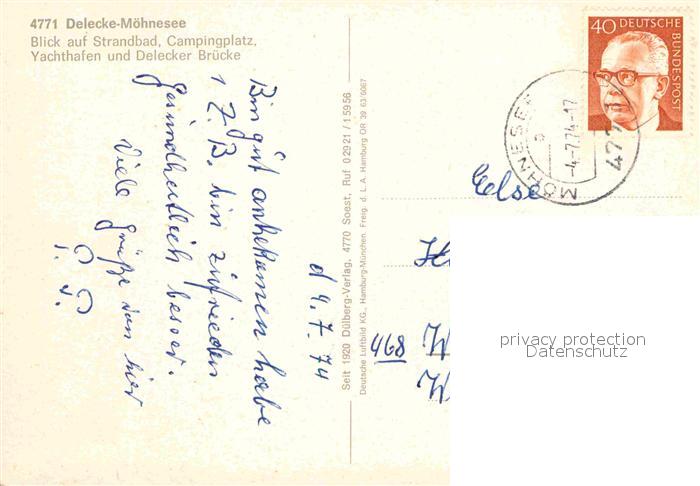 4771 Delecke-Möhnesee
Blick auf Strandbad, Campingplatz,
Yachthafen und Delecker Brücke
d 4.7.74
Bin gut ankekamen habe
1 Z.B. bin zufrieden
gesundheitlich besser.
Viele grüße von hier
Seit 1920 Dülberg-Verlag, 4770 Soest, Ruf 02921/15956
Deutsche Luftbild KG., Hamburg-München. Freig. d. L. A. Hamburg OR 39 63 0067
40 DEUTSCHE
BUNDESPOST
MÖHNESEE
-4-7.74-17
477
Else
468
privacy protection
Datenschutz